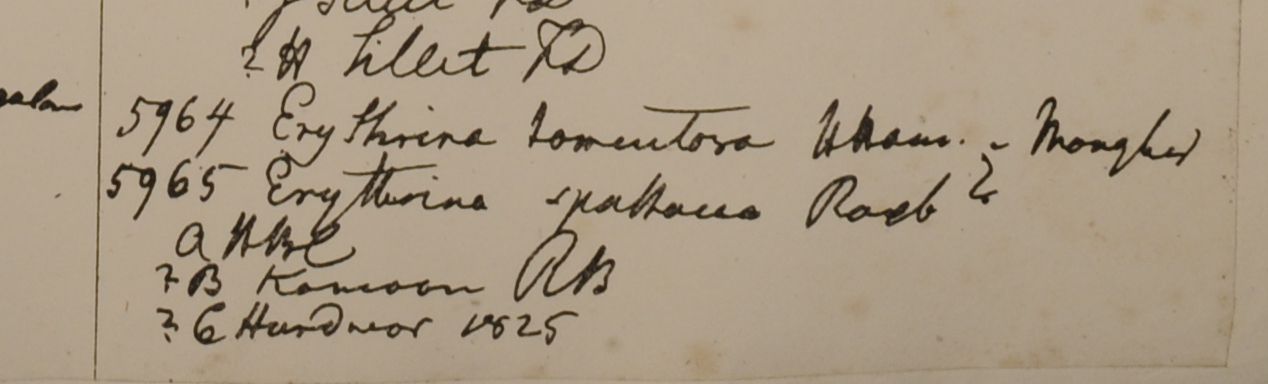 ? H Sillet FD
5964 Erythrina tomentosa HHam. - Monghir
5965 Erythrina spathacea Roxb ?
A HBC
? B Kamaon RB
? C Hurdwar 1825